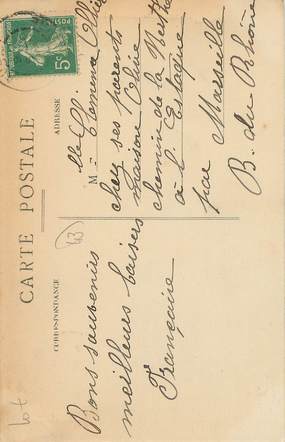 CARTE POSTALE
CORRESPONDANCE
ADRESSE
Bons souvenirs
meilleurs baisers
Françoise
M
lle Clémence Olive
chez ses parents
maison Olive
chemin de la Nerthe
à l'Estaque
par Marseille
B. du Rhône
5c
43
lot